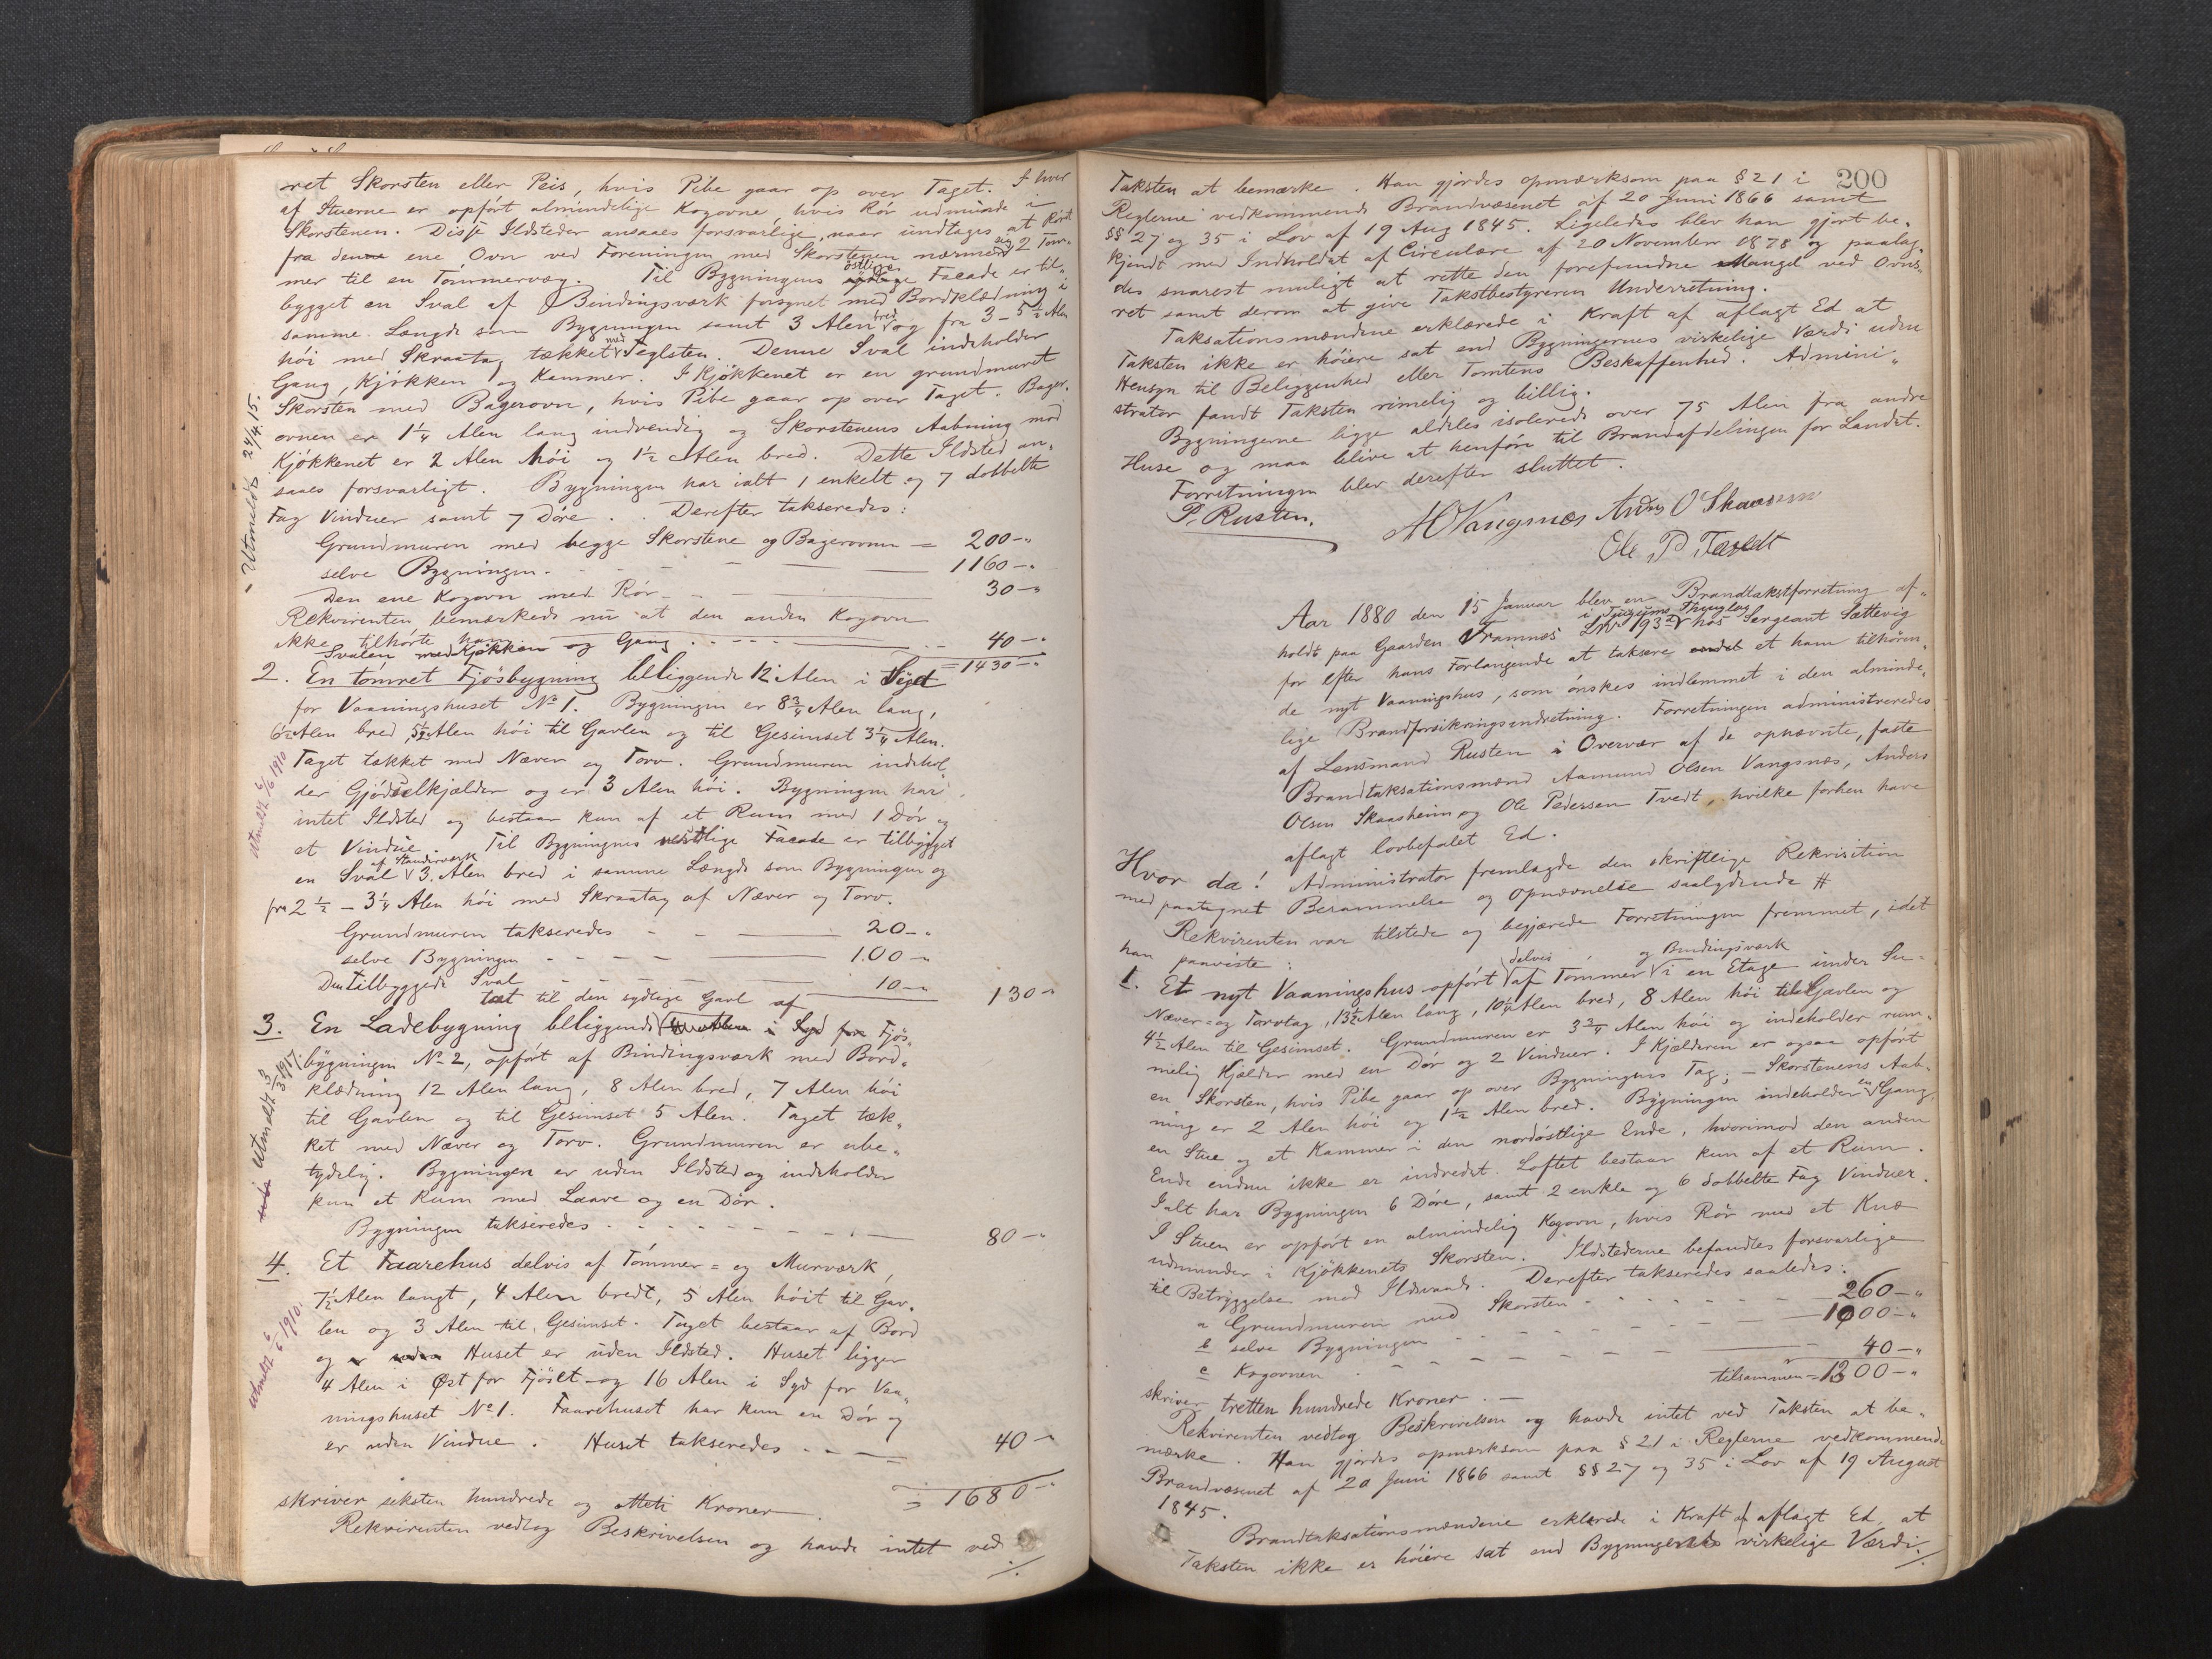 ret Skorsten eller Peis, hvis Pibe gaar op over Taget. I hver
af Stuerne er opført almindelige Kogovne, hvis Rør udmunde i
Skorstenen. Disse Ildsteder ansaaes forsvarlige, naar undtages at Røret
fra denne ene Ovn ved Foreningen med Skorstenen nærmer sig 2 Tom¬
mer til en Tømmervæg. Til Bygningens østlige Facade er til¬
bygget en Sval af Bindingsværk forsynet med Bordklædning i
samme Længde som Bygningen samt 3 Alen bred og fra 3 - 5½ Alen
høi med Skraatag tækket med Teglsten. Denne Sval indeholder
Gang, Kjøkken og Kammer. I Kjøkkenet er en grundmuret
Skorsten med Bagerovn, hvis Pibe gaar op over Taget. Bager¬
ovnen er 1¼ Alen lang indvendig og Skorstenens Aabning mod
Kjøkkenet er 2 Alen høi og 1½ Alen bred. Dette Ildsted an¬
saaes forsvarligt. Bygningen har ialt 1 enkelt og 7 dobbelte
Fag Vinduer samt 7 Døre. Derefter takseredes:
Grundmuren med begge Skorstene og Bagerovnen = 200-"
selve Bygningen - 1160-"
Den ene Kogovn med Rør - 30-"
Rekvirenten bemærkede nu at den anden Kogovn
ikke tilhørte ham
Svalen med Kjøkken og Gang - 40-"
= 1430-"
Utmeldt 24/4.15.
2. En tømret Fjøsbygning beliggende 12 Alen i Syd
for Vaaningshuset No 1. Bygningen er 8¾ Alen lang,
6½ Alen bred, 5½ Alen høi til Gavlen og til Gesimset 3¼ Alen.
Taget tækket med Næver og Torv. Grundmuren indehol¬
der Gjødselkjælder og er 3 Alen høi. Bygningen har
intet Ildsted og bestaar kun af et Rum med 1 Dør og
et Vindue. Til Bygningens vestlige Facade er tilbygget
en Sval af Standerværk 3 Alen bred i samme Længde som Bygningen og
fra 2½ - 3¼ Alen høi med Skraatag af Næver og Torv.
Grundmuren takseredes - 20-"
selve Bygningen - 100-"
Den tilbyggede Sval - 10-" 130-"
utmeldt 6/6 1910
3. En Ladebygning beliggende tæt til den sydlige Gavl af Fjøs¬
bygningen No 2, opført af Bindingsværk med Bord¬
klædning 12 Alen lang, 8 Alen bred, 7 Alen høi
til Gavlen og til Gesimset 5 Alen. Taget tæk¬
ket med Næver og Torv. Grundmuren er ube¬
tydelig. Bygningen er uden Ildsted og indeholder
kun et Rum med Laave og en Dør.
Bygningen takseredes - 80-"
utmeldt 3/3 1917.
4. Et Faarehus delvis af Tømmer= og Murværk,
7½ Alen langt, 4 Alen bredt, 5 Alen høit til Gav¬
len og 3 Alen til Gesimset. Taget bestaar af Bord
og Huset er uden Ildsted. Huset ligger
4 Alen i Øst for Fjøset og 16 Alen i Syd for Vaa¬
ningshuset No 1. Faarehuset har kun en Dør og
er uden Vindue. Huset takseredes - 40-"
utmeldt 6/6 1910.
= 1680-"
skriver seksten hundrede og otteti Kroner.
Rekvirenten vedtog Beskrivelsen og havde intet ved
200
Taksten at bemærke. Han gjordes opmærksom paa § 21 i
Reglerne vedkommende Brandvæsenet af 20 Juni 1866 samt
§§ 27 og 35 i Lov af 19 Aug 1845. Ligeledes blev han gjort be¬
kjendt med Indholdet af Circulære af 20 November 1878 og paalag¬
des snarest muligt at rette den forefundne Mangel ved Ovns¬
ret samt derom at give Takstbestyreren Underretning.
Taksationsmændene erklærede i Kraft af aflagt Ed at
Taksten ikke er høiere sat end Bygningernes virkelige Værdi uden
Hensyn til Beliggenhed eller Tomtens Beskaffenhed. Admini¬
strator fandt Taksten rimelig og billig.
Bygningerne ligge aldeles isolerede over 75 Alen fra andre
Huse og maa blive at henføre til Brandafdelingen for Landet.
Forretningen blev derefter sluttet.
P. Rusten. AO Vangsnæs Anders O Skaasheim
Ole P Tvedt
Aar 1880 den 15 Januar blev en Brandtakstforretning af¬
holdt paa Gaarden Framnæs i Tjugums Thinglag LNr 193 hos Sergeant Sættevig
for efter hans Forlangende at taksere et ham tilhøren¬
de nyt Vaaningshus, som ønskes indlemmet i den alminde¬
lige Brandforsikringsindretning. Forretningen administreredes
af Lensmand Rusten i Overvær af de opnævnte, faste
Brandtaksationsmænd Aamund Olsen Vangsnæs, Anders
Olsen Skaasheim og Ole Pedersen Tvedt, hvilke forhen have
aflagt lovbefalet Ed.
Hvor da! Administrator fremlagde den skriftlige Rekvisition
med paategnet Berammelse og Opnævnelse saalydende #
Rekvirenten var tilstede og begjærede Forretningen fremmet, idet
han paaviste:
1. Et nyt Vaaningshus opført delvis af Tømmer og Bindingsværk i en Etage under Su=
Næver= og Torvtag, 13½ Alen lang, 10¼ Alen bred, 8 Alen høi til Gavlen og
4½ Alen til Gesimset. Grundmuren er 3¾ Alen høi og indeholder rum¬
melig Kjælder med en Dør og 2 Vinduer. I Kjælderen er ogsaa opført
en Skorsten, hvis Pibe gaar op over Bygningens Tag; - Skorstenens Aab¬
ning er 2 Alen høi og 1½ Alen bred. Bygningen indeholder en Gang,
en Stue og et Kammer i den nordøstlige Ende, hvorimod den anden
Ende endnu ikke er indredet. Loftet bestaar kun af et Rum.
Ialt har Bygningen 6 Døre, samt 2 enkle og 6 dobbelte Fag Vinduer.
I Stuen er opført en almindelig Kogovn, hvis Rør med et Knæ
udmunder i Kjøkkenets Skorsten. Ildstederne befandtes forsvarlige
til Betryggelse mod Ildsvaade. Derefter takseredes saaledes:
a Grundmuren med Skorsten - 260-"
b selve Bygningen - 1000-"
c Kogovnen - 40-"
tilsammen = 1300-"
skriver tretten hundrede Kroner. -
Rekvirenten vedtog Beskrivelsen og havde intet ved Taksten at be¬
mærke. Han gjordes opmærksom paa § 21 i Reglerne vedkommende
Brandvæsenet af 20 Juni 1866 samt §§ 27 og 35 i Lov af 19 August
1845.
Brandtaksationsmændene erklærede i Kraft af aflagt Ed, at
Taksten ikke er høiere sat end Bygningens virkelige Værdi